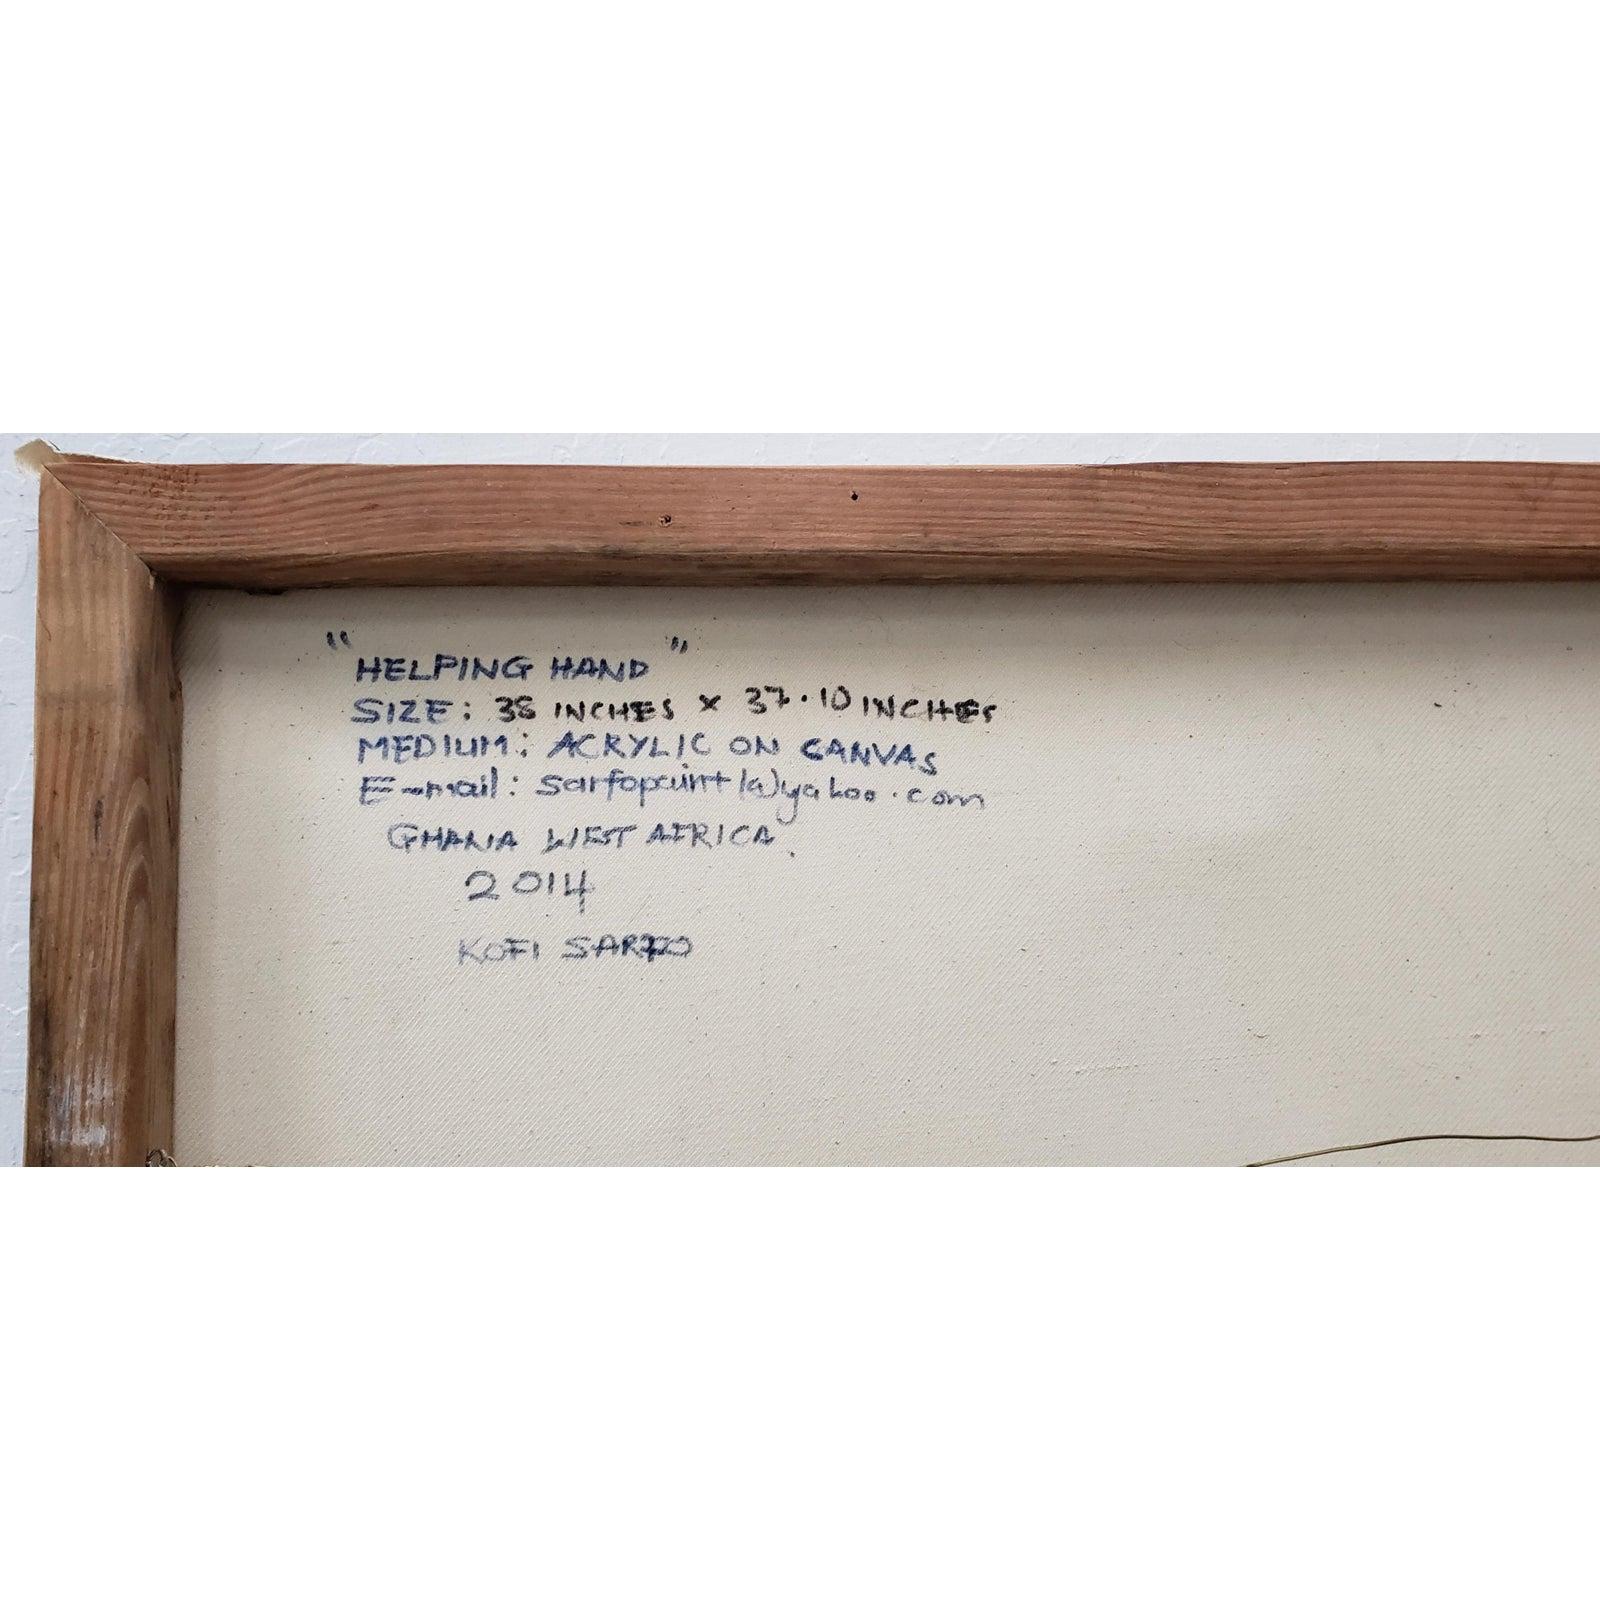 "HELPING HAND"
SIZE: 38 INCHES x 37.10 INCHES
MEDIUM: ACRYLIC ON CANVAS
E-mail: sarfopaint(a)yahoo.com
GHANA WEST AFRICA.
2014
KOFI SARFO